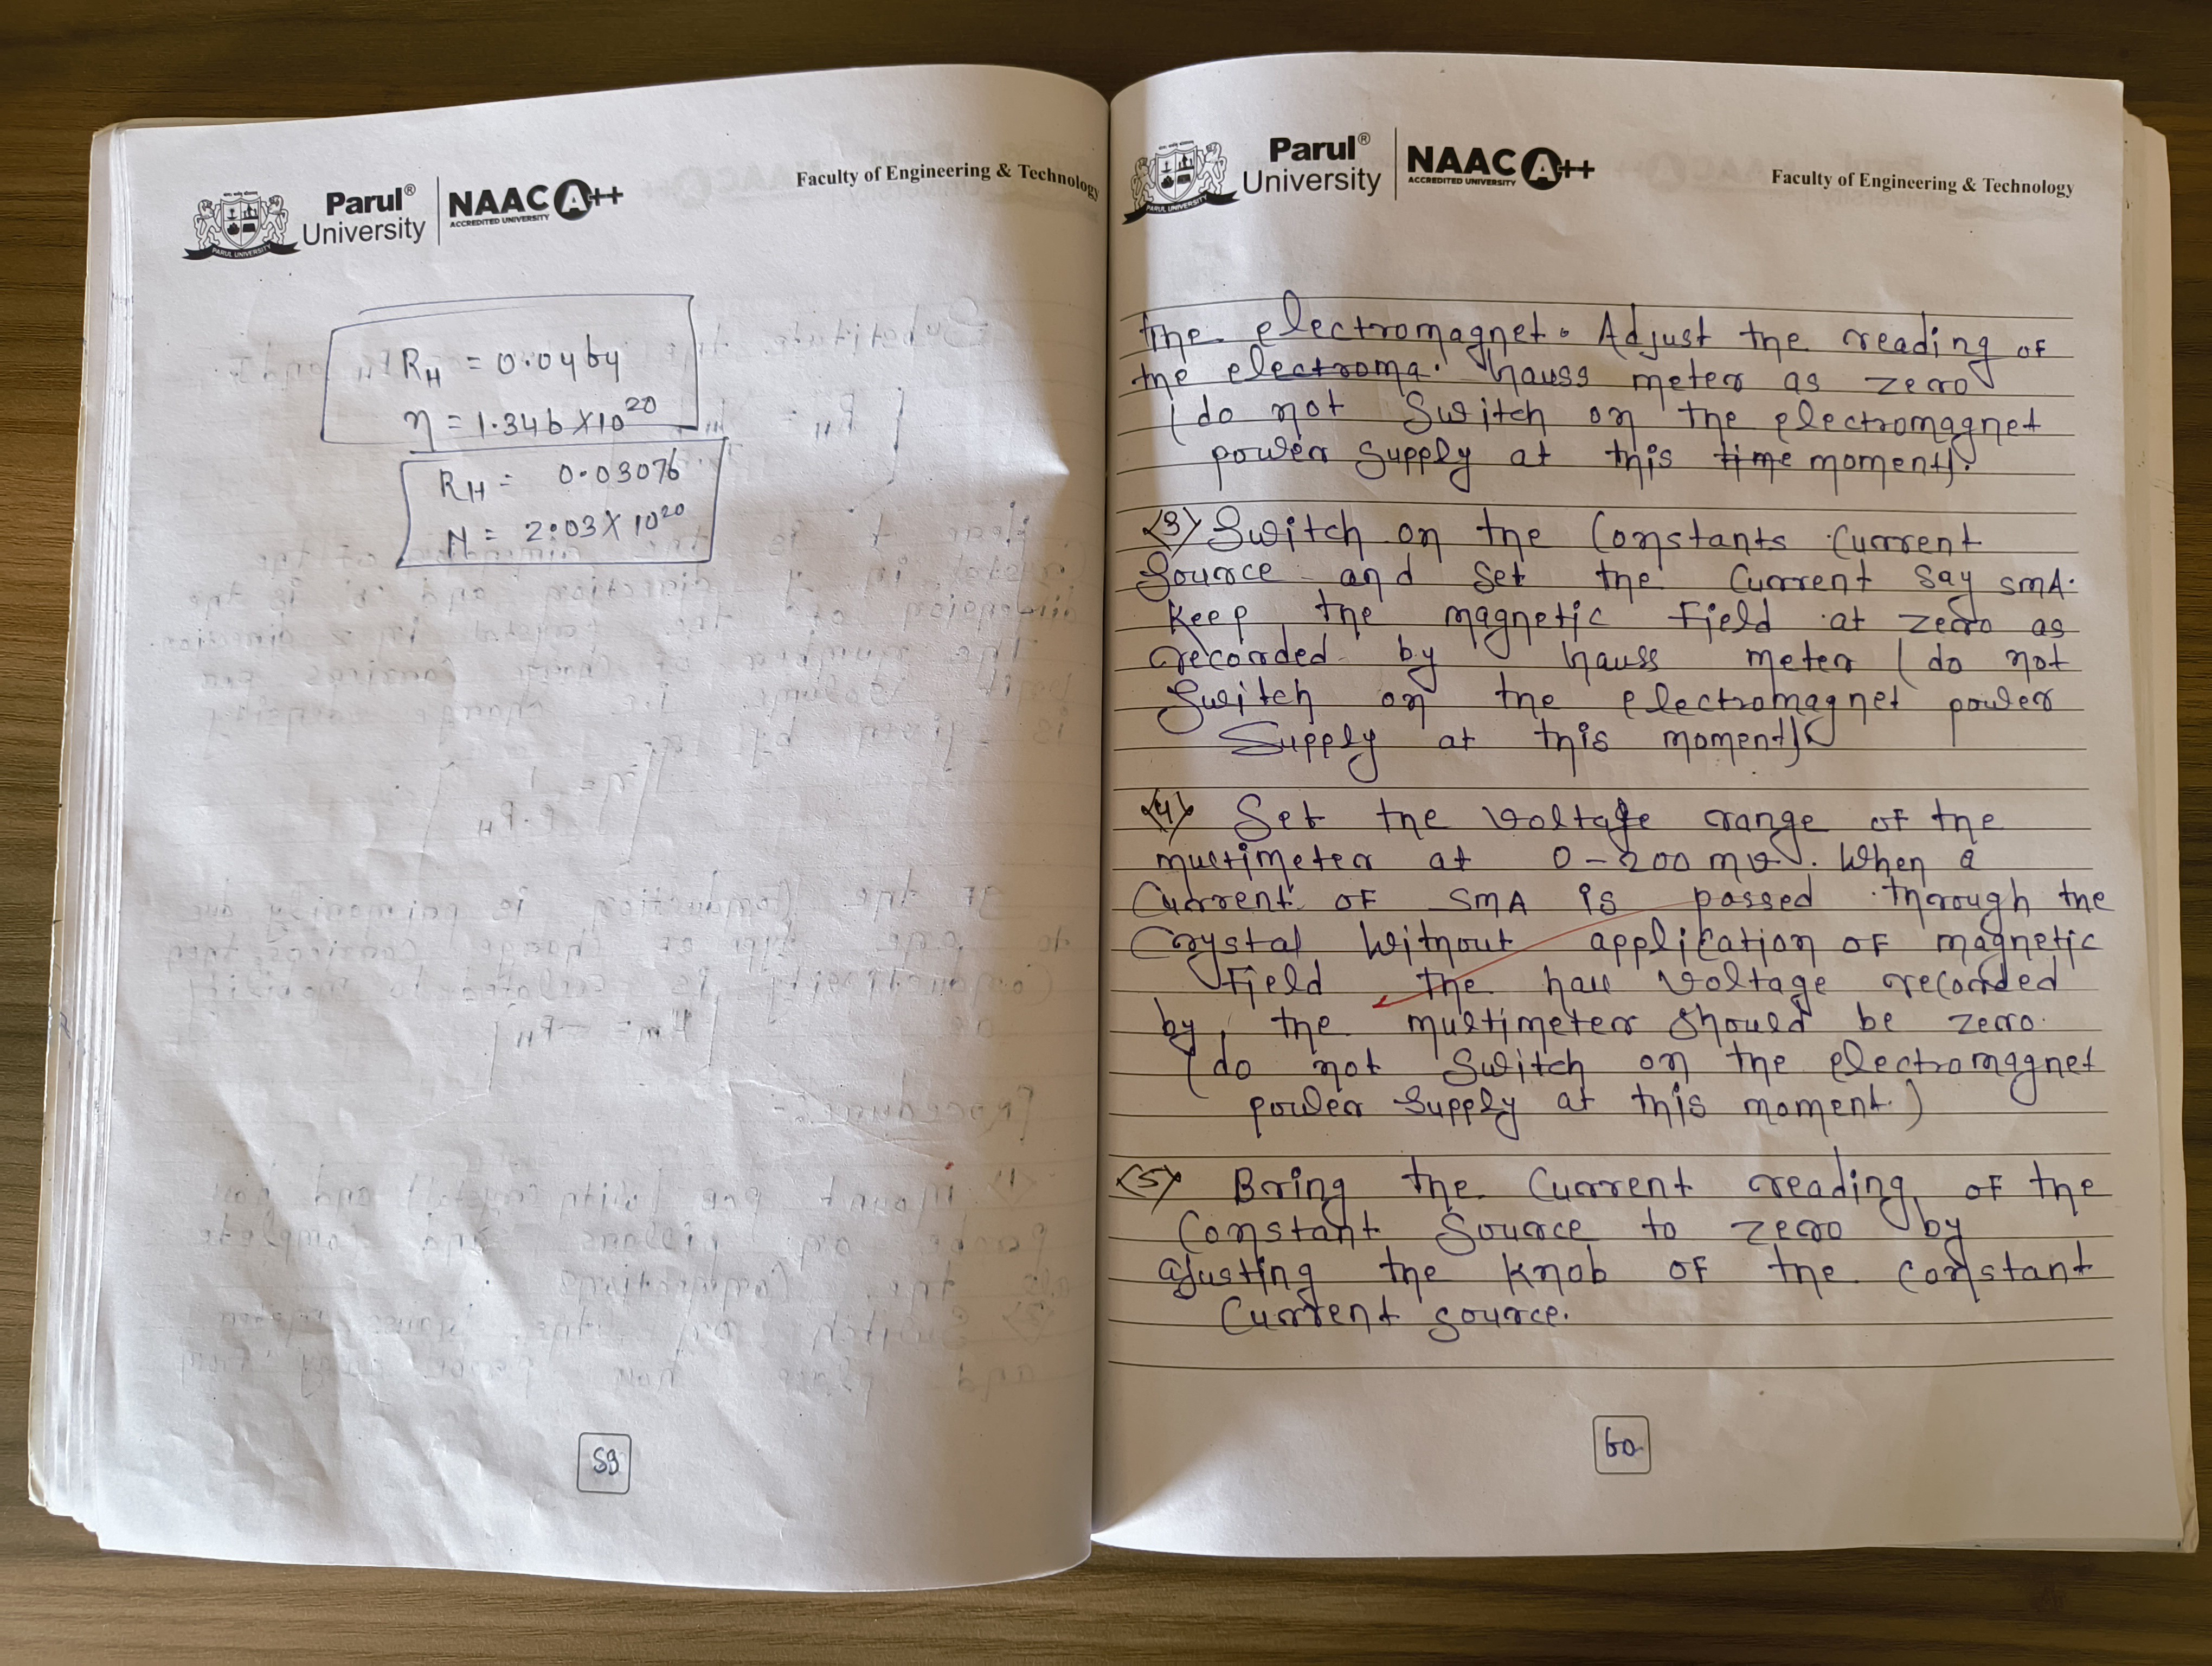 Parul®
University
NAAC A++
ACCREDITED UNIVERSITY
PARUL UNIVERSITY
Faculty of Engineering & Technology
RH = 0.0464
η = 1.346 X10^20
RH = 0.03076
N = 2.03 X 10^20
59
Parul®
University
NAAC A++
ACCREDITED UNIVERSITY
PARUL UNIVERSITY
Faculty of Engineering & Technology
the electromagnet. Adjust the reading of
the electroma. hauss meter as zero
(do not Switch on the electromagnet
power supply at this time moment).
<3> Switch on the Constants Current
Source and set the Current say 5mA.
Keep the magnetic Field at zero as
recorded by hauss meter (do not
Switch on the electromagnet power
Supply at this moment)
<4> Set the voltage range of the
multimeter at 0-200 mv. When a
Current of 5mA is passed through the
Crystal without application of magnetic
Field the hall voltage recorded
by the multimeter should be zero.
(do not Switch on the electromagnet
power supply at this moment.)
<5> Bring the Current reading of the
Constant Source to zero by
ajusting the Knob of the constant
Current source.
60